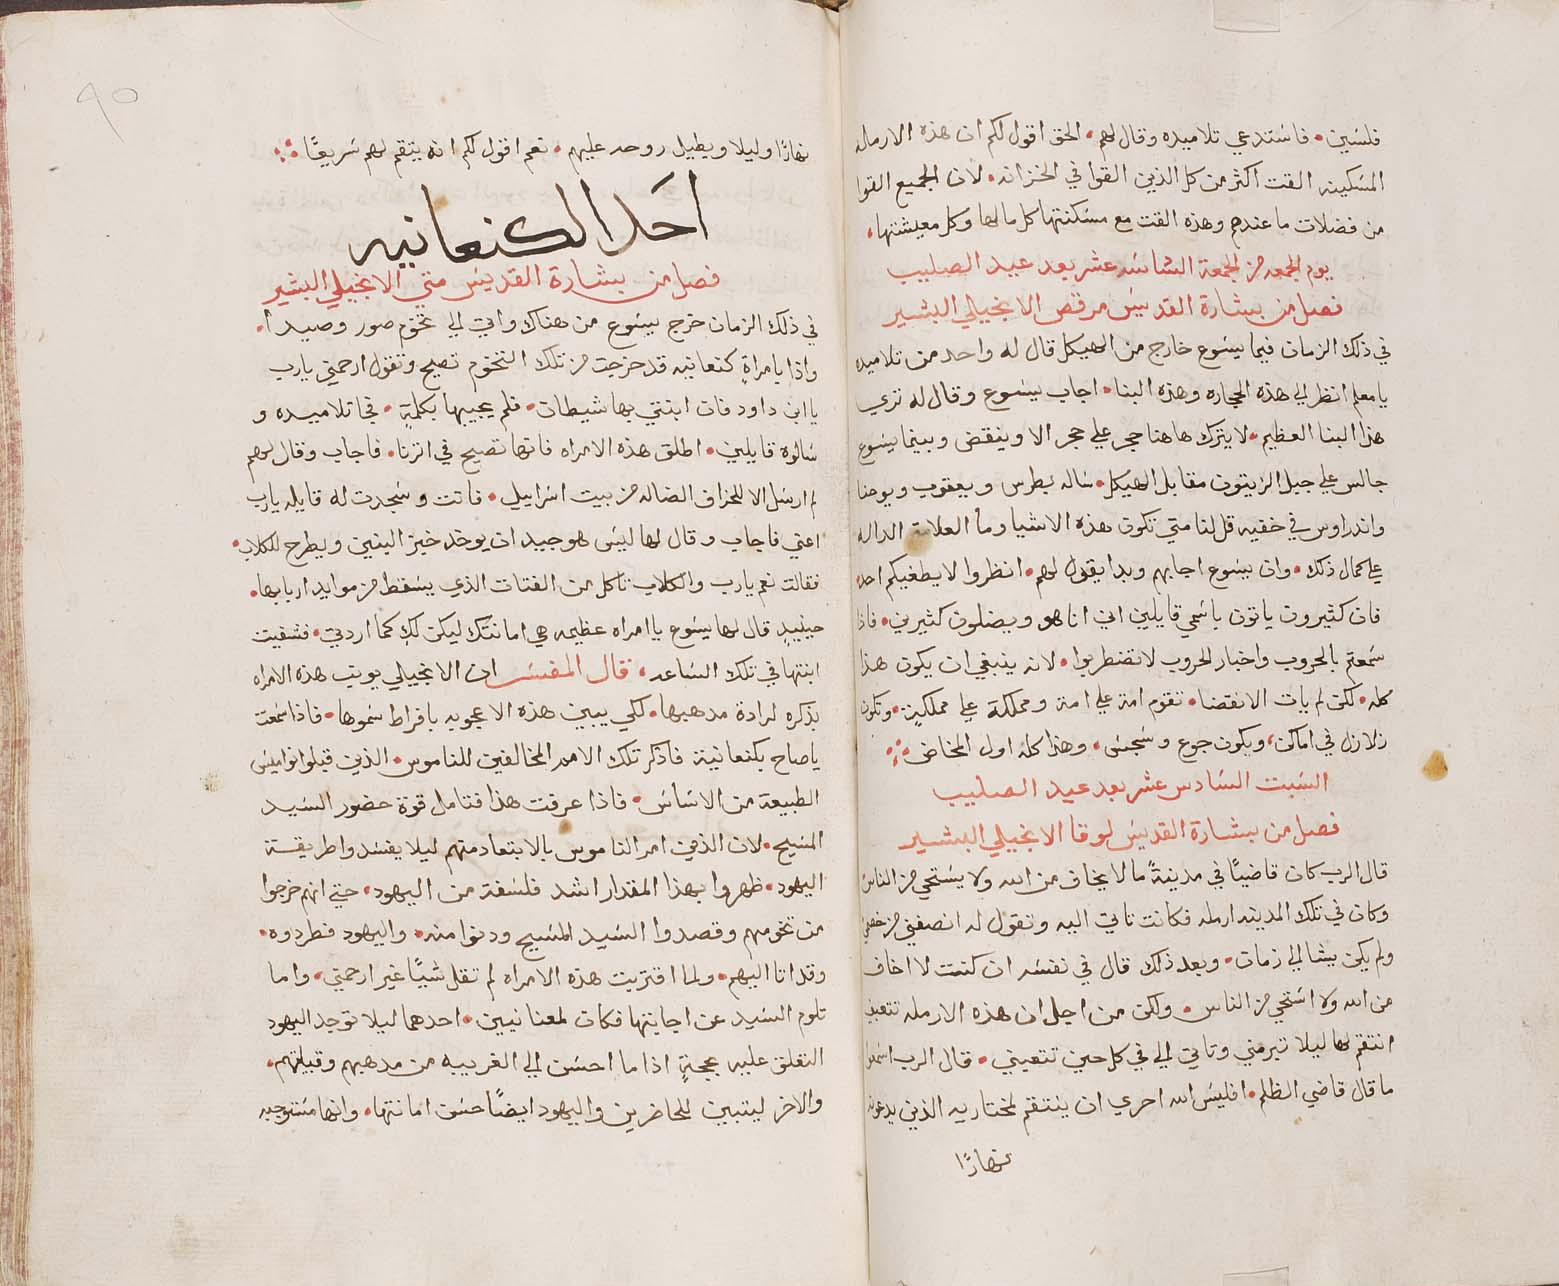 فلسين • فاستدعي تلاميده وقال لهم • الحق اقول لكم ان هذه الارمله
المسكينه القت اكثر من كل الذين القوا في الخزانه • لان الجميع القوا
من فضلات ما عندهم وهذه القت مع مسكنتها كل مالها وكل معيشتها •
يوم الجمعه من الجمعة السادسه عشر بعد عيد الصليب
فصل من بشارة القديس مرقص الانجيلي البشير
في ذلك الزمان فيما يسوع خارج من الهيكل قال له واحد من تلاميده
يا معلم انظر الي هذه الحجاره وهذه البنا • اجاب يسوع وقال له تري
هذا البنا العظيم • لا يترك هاهنا حجر علي حجر الا وينقض وبينما يسوع
جالس علي جبل الزيتون مقابل الهيكل • ساله بطرس ويعقوب ويوحنا
واندراوس في خفيه قل لنا متي تكون هذه الاشيا وما العلامة الداله
علي كمال ذلك • وان يسوع اجابهم وبدا يقول لهم • انظروا لا يطغيكم احد
فان كثيرون ياتون باسمي قايلين اني انا هو ويضلون كثيرين • فاذا
سمعتم بالحروب واخبار الحروب لا تضطربوا • لانه ينبغي ان يكون هذا
كله • لكن لم يات الانقضا • تقوم امة علي امة ومملكة علي مملكةٍ • وتكون
زلازل في اماكن • ويكون جوع وسجس • وهذا كله اول المخاض
السبت السادس عشر بعد عيد الصليب
فصل من بشارة القديس لوقا الانجيلي البشير
قال الرب كان قاضيًا في مدينةً ما لا يخاف من الله ولا يستحي من الناس
وكان في تلك المدينه ارمله فكانت تاتي اليه وتقول له انصفني من خصمي
ولم يكن يشا الي زمان • وبعد ذلك قال في نفسه ان كنت لا اخاف
من الله ولا استحي من الناس • ولكن من اجل ان هذه الارمله تتعبني
انتقم لها ليلا تبرمني وتاتي الي في كل حين تتعبني • قال الرب اسمعوا
ما قال قاضي الظلم • افليس الله احري ان ينتقم لمختاريه الذين يدعونه
نهارًا
٩٥
نهارًا وليلا ويطيل روحه عليهم • نعم اقول لكم انه ينتقم لهم سريعًا
احَد الكنعانيه
فصل من بشارة القديس متي الانجيلي البشير
في ذلك الزمان خرج يسوع من هناك واتي الي تخوم صور وصيدا •
واذا بامراةٍ كنعانيه قد خرجت من تلك التخوم تصيح وتقول ارحمني يارب
يا ابن داود فان ابنتي بها شيطان • فلم يجيبها بكلمةٍ • فجا تلاميده و
سالوه قايلين • اطلق هذه الامراه فانها تصيح في اثرنا • فاجاب وقال لهم
لم ارسل الا للخراف الضاله من بيت اسراييل • فاتت وسجدت له قايله يارب
اعني فاجاب وقال لها ليس هو جيد ان يوخد خبز البنين ويطرح للكلاب •
فقالت نعم يارب والكلاب تاكل من الفتات الذي يسقط من موايد اربابها •
حينيدٍ قال لها يسوع يا امراه عظيمه هي امانتك ليكن لكِ كما اردتي • فشفيت
ابنتها في تلك الساعه • قال المفسر ان الانجيلي يوبب هذه الامراه
بذكره لرادة مدهبها • لكي يبين هذه الاعجوبه بافراط سموها • فاذا سمعت
يا صاح بكنعانية فاذكر تلك الامم المخالفين للناموس • الذين قبلوا نواميس
الطبيعة من الاساس • فاذا عرفت هذا فتامل قوة حضور السيد
المسيح • لان الذين امر الناموس بالابتعاد منهم ليلا يفسدوا طريقة
اليهود • ظهروا بهذا المقدار اشد فلسفة من اليهود • حتي انهم خرجوا
من تخومهم وقصدوا السيد المسيح ودنوا منه • واليهود فطردوه •
وقد اتا اليهم • ولما اقتربت هذه الامراه لم تقل شيًا غير ارحمني • واما
تلوم السيد عن اجابتها فكان لمعنانيين • احدهما ليلا توجد اليهود
التعلق عليه بحجةٍ اذا ما احسن الي الغريبه من مدهبهم وقبيلتهم •
والاخر ليتبين للحاضرين واليهود ايضًا حسن امانتها • وانها مستوجبه